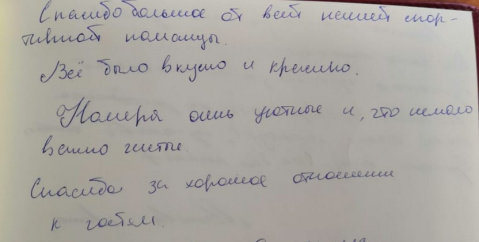 Спасибо большое от всей нашей спор-
тивной команды.
Всё было вкусно и красиво.
Номера очень уютные и, что немало
важно чистые.
Спасибо за хорошое отношение
к гостям.